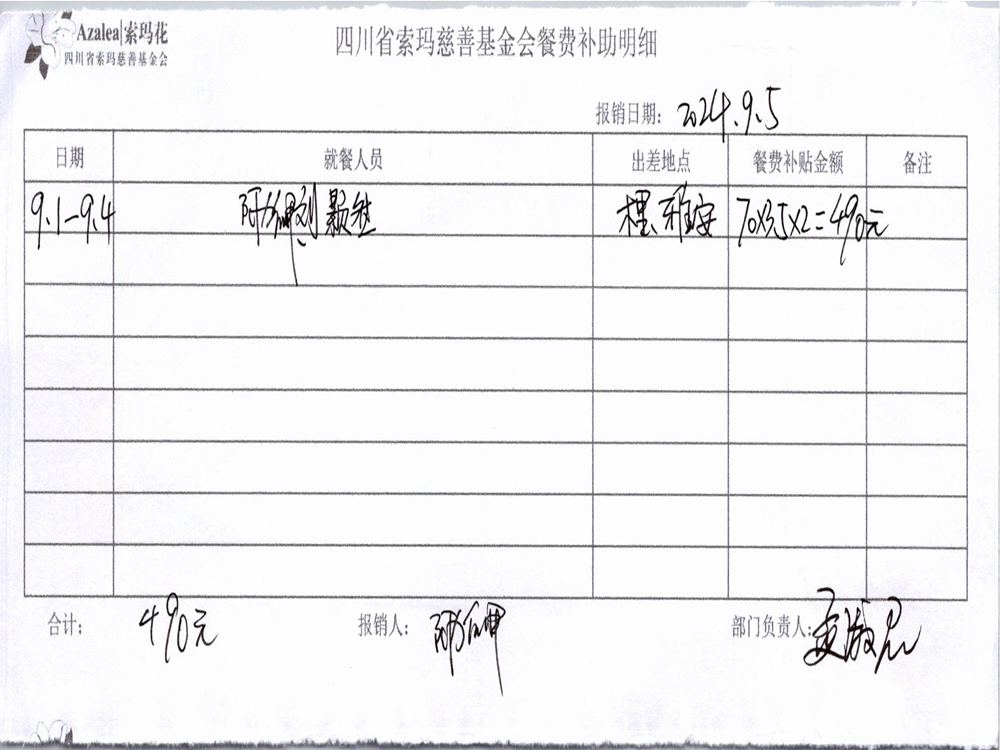 Azalea|索玛花
四川省索玛慈善基金会
四川省索玛慈善基金会餐费补助明细
报销日期: 2024.9.5
日期 就餐人员 出差地点 餐费补贴金额 备注
9.1-9.4 雅安 70×3.5×2=490元
合计: 490元 报销人: 部门负责人: